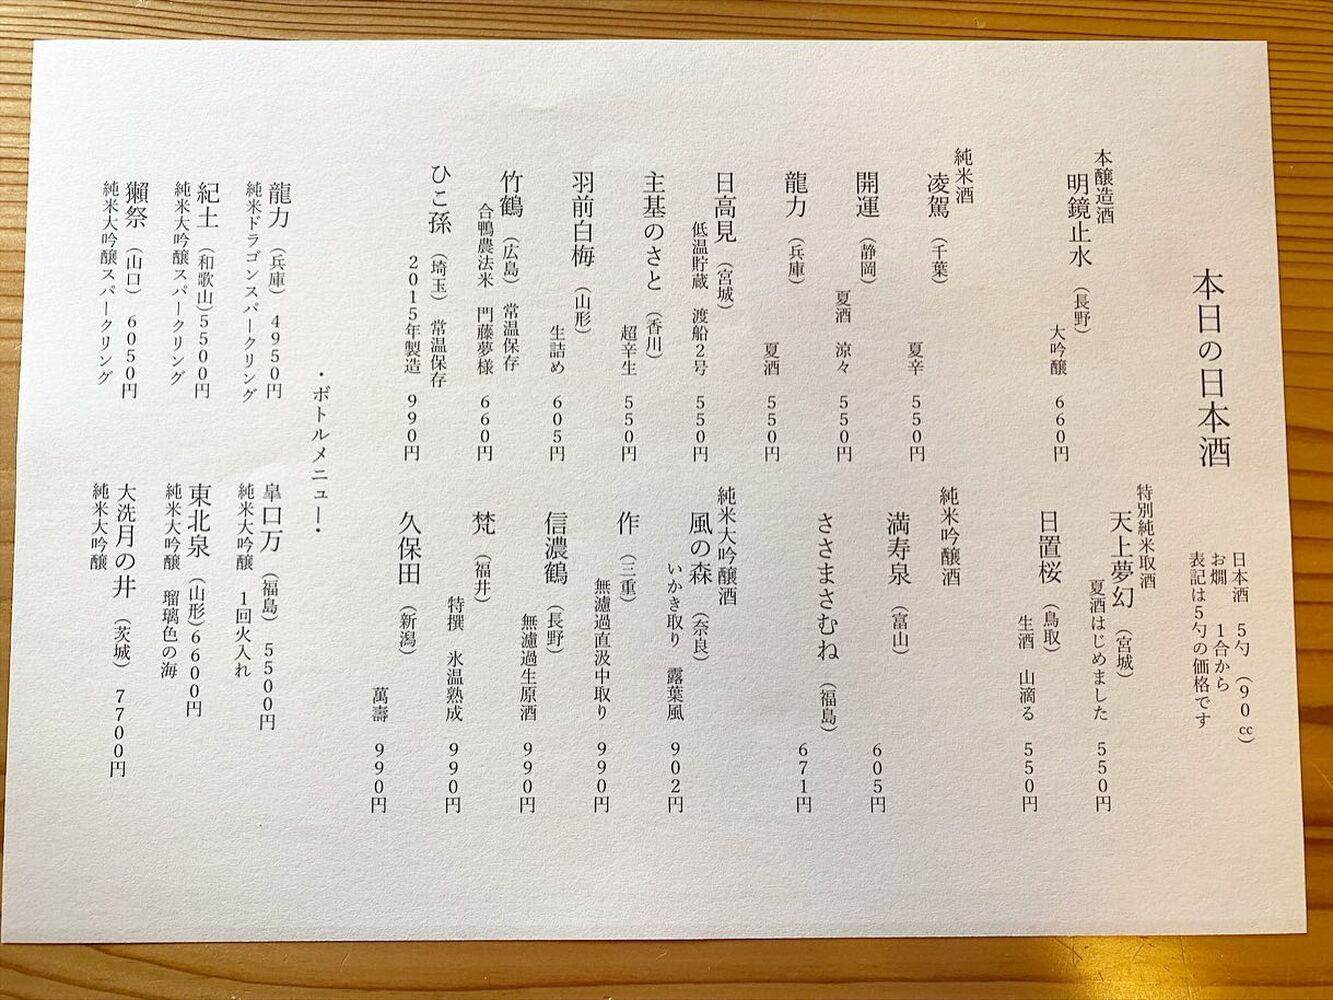 本日の日本酒
日本酒 5勺(90㏄)
お燗 1合から
表記は5勺の価格です
本醸造酒
明鏡止水(長野)
大吟醸 660円
純米酒
凌駕(千葉)
夏辛 550円
開運(静岡)
夏酒 涼々 550円
龍力(兵庫)
夏酒 550円
日高見(宮城)
低温貯蔵 渡船2号 550円
主基のさと(香川)
超辛生 550円
羽前白梅(山形)
生詰め 605円
竹鶴(広島) 常温保存
合鴨農法米 門藤夢様 660円
ひこ孫(埼玉) 常温保存
2015年製造 990円
特別純米取酒
天上夢幻(宮城)
夏酒はじめました 550円
日置桜(鳥取)
生酒 山滴る 550円
純米吟醸酒
満寿泉(富山)
605円
ささまさむね(福島)
671円
純米大吟醸酒
風の森(奈良)
いかき取り 露葉風 902円
作(三重)
無濾過直汲中取り 990円
信濃鶴(長野)
無濾過生原酒 990円
梵(福井)
特撰 氷温熟成 990円
久保田(新潟)
萬壽 990円
・ボトルメニュー・
龍力(兵庫) 4950円
純米ドラゴンスパークリング
紀土(和歌山)5500円
純米大吟醸スパークリング
獺祭(山口) 6050円
純米大吟醸スパークリング
皐口万(福島) 5500円
純米大吟醸 1回火入れ
東北泉(山形)6600円
純米大吟醸 瑠璃色の海
大洗月の井(茨城) 7700円
純米大吟醸